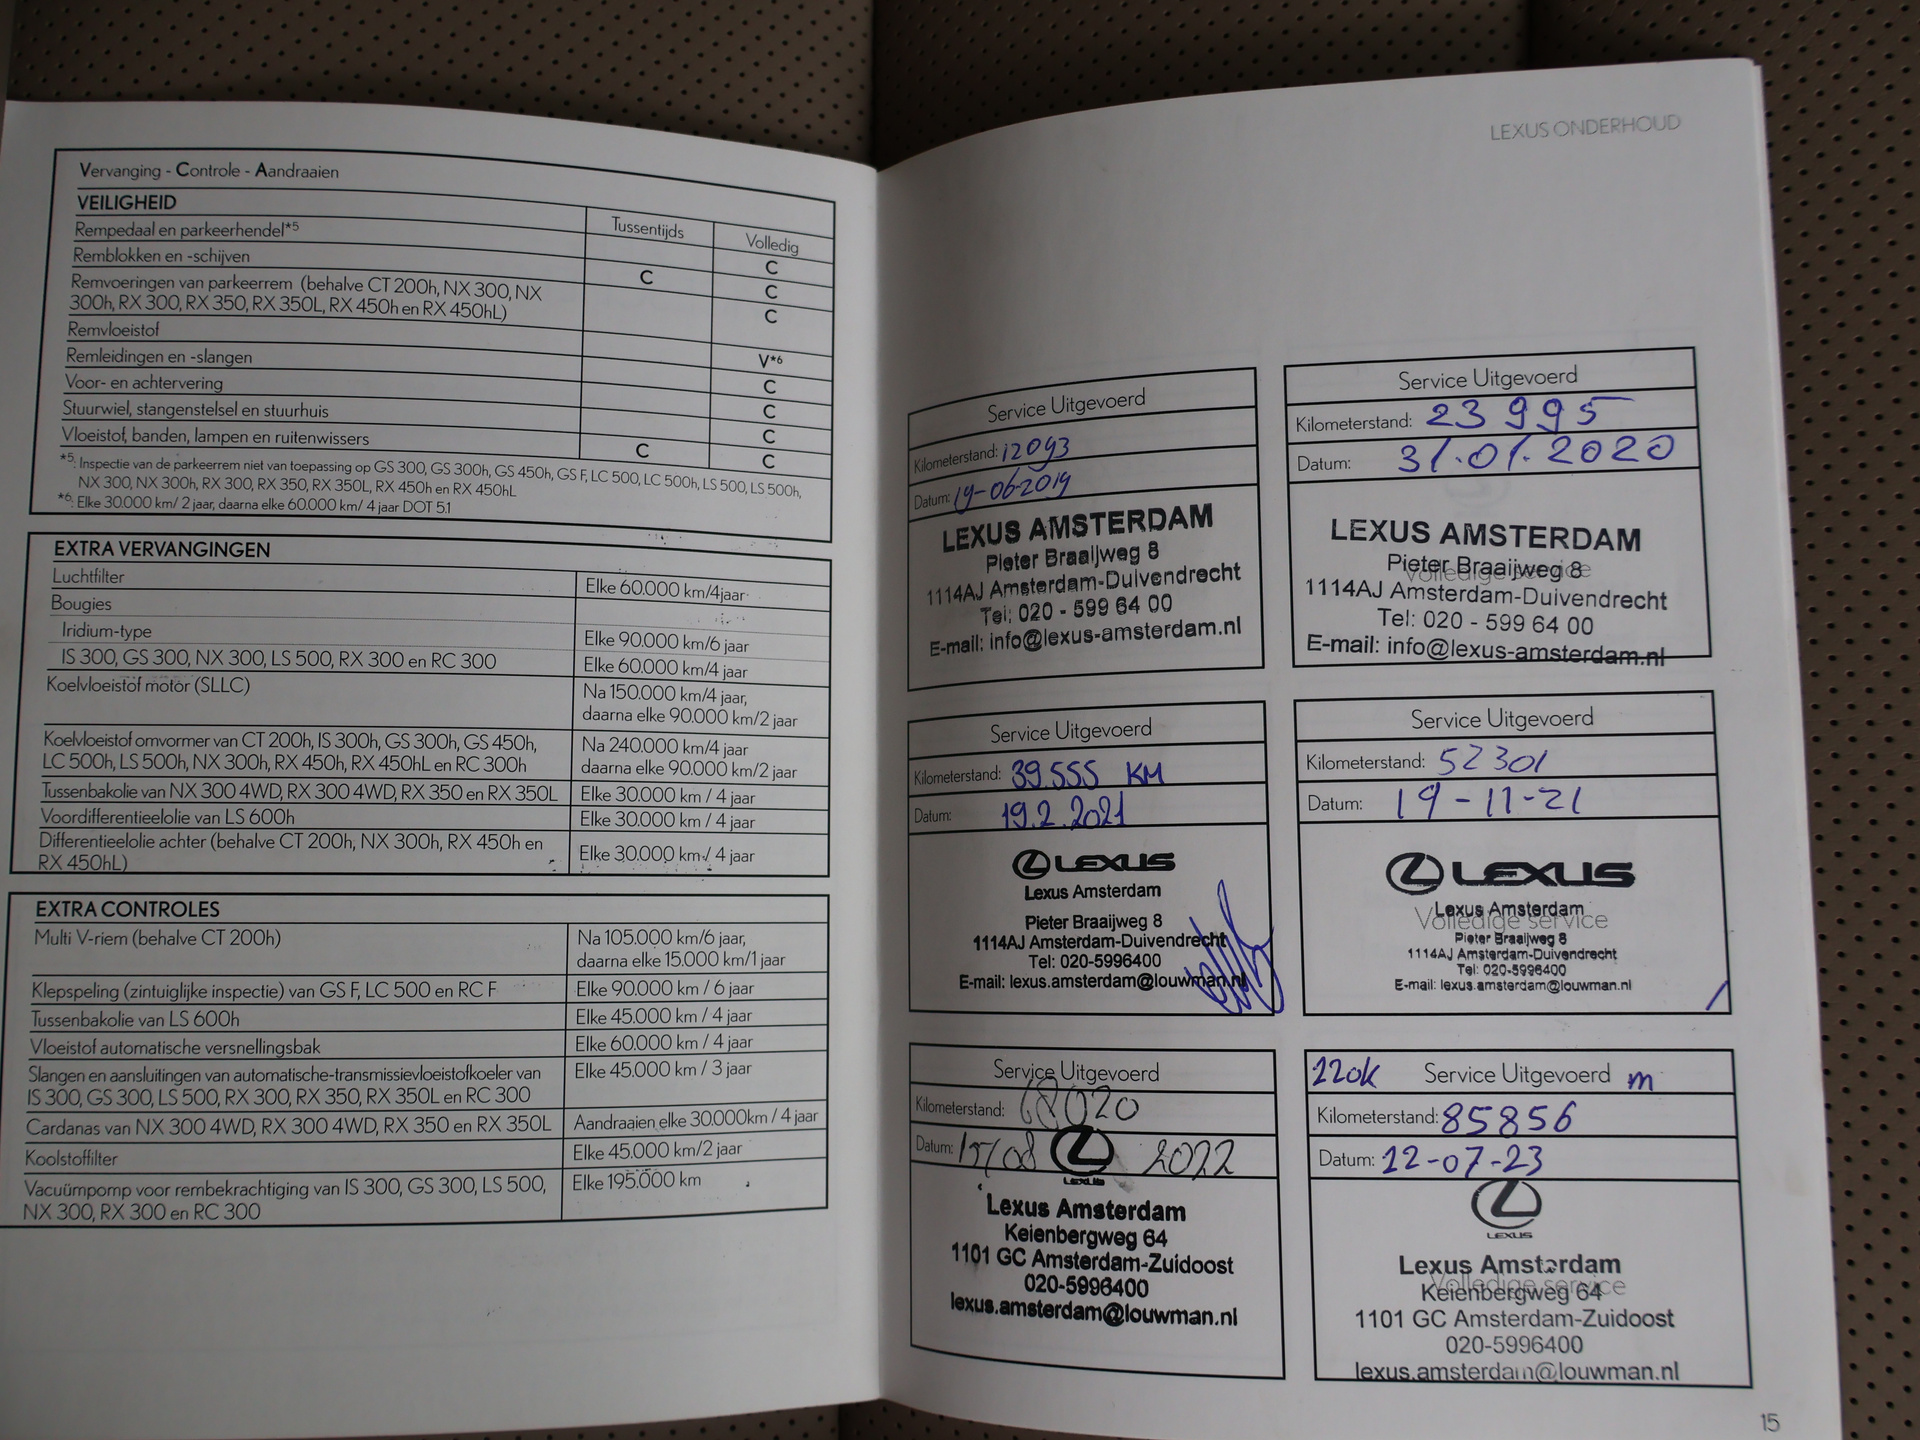 Vervanging - Controle - Aandraaien
VEILIGHEID
Tussentijds
Volledig
Rempedaal en parkeerhendel*5
C
Remblokken en -schijven
C
C
Remvoeringen van parkeerrem (behalve CT 200h, NX 300, NX
300h, RX 300, RX 350, RX 350L, RX 450h en RX 450hL)
C
Remvloeistof
V*6
Remleidingen en -slangen
C
Voor- en achtervering
C
Stuurwiel, stangenstelsel en stuurhuis
C
Vloeistof, banden, lampen en ruitenwissers
C
C
*5: Inspectie van de parkeerrem niet van toepassing op GS 300, GS 300h, GS 450h, GS F, LC 500, LC 500h, LS 500, LS 500h,
NX 300, NX 300h, RX 300, RX 350, RX 350L, RX 450h en RX 450hL
*6: Elke 30.000 km/ 2 jaar, daarna elke 60.000 km/ 4 jaar DOT 5.1
EXTRA VERVANGINGEN
Luchtfilter
Elke 60.000 km/4jaar
Bougies
Iridium-type
Elke 90.000 km/6 jaar
IS 300, GS 300, NX 300, LS 500, RX 300 en RC 300
Elke 60.000 km/4 jaar
Koelvloeistof motor (SLLC)
Na 150.000 km/4 jaar,
daarna elke 90.000 km/2 jaar
Koelvloeistof omvormer van CT 200h, IS 300h, GS 300h, GS 450h,
LC 500h, LS 500h, NX 300h, RX 450h, RX 450hL en RC 300h
Na 240.000 km/4 jaar
daarna elke 90.000 km/2 jaar
Tussenbakolie van NX 300 4WD, RX 300 4WD, RX 350 en RX 350L
Elke 30.000 km / 4 jaar
Voordifferentieelolie van LS 600h
Elke 30.000 km / 4 jaar
Differentieelolie achter (behalve CT 200h, NX 300h, RX 450h en
RX 450hL)
Elke 30.000 km / 4 jaar
EXTRA CONTROLES
Multi V-riem (behalve CT 200h)
Na 105.000 km/6 jaar,
daarna elke 15.000 km/1 jaar
Klepspeling (zintuiglijke inspectie) van GS F, LC 500 en RC F
Elke 90.000 km / 6 jaar
Tussenbakolie van LS 600h
Elke 45.000 km / 4 jaar
Vloeistof automatische versnellingsbak
Elke 60.000 km / 4 jaar
Slangen en aansluitingen van automatische-transmissievloeistofkoeler van
IS 300, GS 300, LS 500, RX 300, RX 350, RX 350L en RC 300
Elke 45.000 km / 3 jaar
Cardanas van NX 300 4WD, RX 300 4WD, RX 350 en RX 350L
Aandraaien elke 30.000km / 4 jaar
Koolstoffilter
Elke 45.000 km/2 jaar
Vacuümpomp voor rembekrachtiging van IS 300, GS 300, LS 500,
NX 300, RX 300 en RC 300
Elke 195.000 km
LEXUS ONDERHOUD
Service Uitgevoerd
Kilometerstand: 12093
Datum: 19-06-2019
LEXUS AMSTERDAM
Pieter Braaijweg 8
1114AJ Amsterdam-Duivendrecht
Tel: 020 - 599 64 00
E-mail: info@lexus-amsterdam.nl
Service Uitgevoerd
Kilometerstand: 23995
Datum: 31.01.2020
LEXUS AMSTERDAM
Pieter Braaijweg 8
Volledige service
1114AJ Amsterdam-Duivendrecht
Tel: 020 - 599 64 00
E-mail: info@lexus-amsterdam.nl
Service Uitgevoerd
Kilometerstand: 39.555 KM
Datum: 19.2.2021
LEXUS
Lexus Amsterdam
Pieter Braaijweg 8
1114AJ Amsterdam-Duivendrecht
Tel: 020-5996400
E-mail: lexus.amsterdam@louwman.nl
Service Uitgevoerd
Kilometerstand: 52301
Datum: 19-11-21
LEXUS
Lexus Amsterdam
Volledige service
Pieter Braaijweg 8
1114AJ Amsterdam-Duivendrecht
Tel: 020-5996400
E-mail: lexus.amsterdam@louwman.nl
Service Uitgevoerd
Kilometerstand: 68020
Datum: 15/08 2022
LEXUS
Lexus Amsterdam
Keienbergweg 64
1101 GC Amsterdam-Zuidoost
020-5996400
lexus.amsterdam@louwman.nl
120K Service Uitgevoerd m
Kilometerstand: 85856
Datum: 12-07-23
LEXUS
Lexus Amsterdam
Volledige service
Keienbergweg 64
1101 GC Amsterdam-Zuidoost
020-5996400
lexus.amsterdam@louwman.nl
15